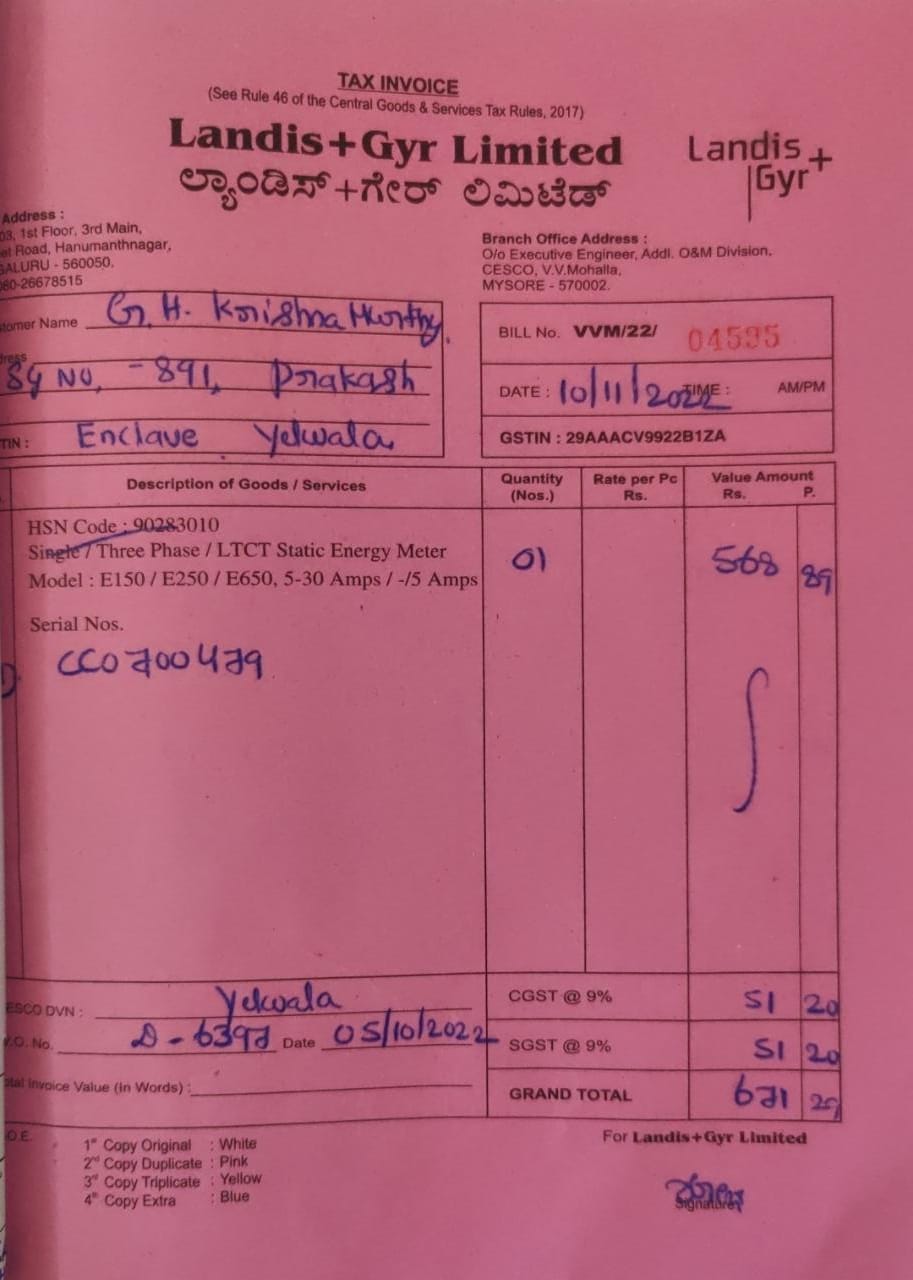 TAX INVOICE
(See Rule 46 of the Central Goods & Services Tax Rules, 2017)
Landis+Gyr Limited
ಲ್ಯಾಂಡಿಸ್+ಗೇರ್ ಲಿಮಿಟೆಡ್
Landis+
Gyr
Address :
03, 1st Floor, 3rd Main,
et Road, Hanumanthnagar,
GALURU - 560050.
080-26678515
Branch Office Address :
O/o Executive Engineer, Addl. O&M Division,
CESCO, V.V.Mohalla,
MYSORE - 570002.
tomer Name G. H. Krishna Murthy.
dress
Sy No, - 891, Prakash
TIN : Enclave Yelwala
BILL No. VVM/22/ 04595
DATE : 10/11/2022 TIME : AM/PM
GSTIN : 29AAACV9922B1ZA
Description of Goods / Services Quantity (Nos.) Rate per Pc Rs. Value Amount Rs. P.
HSN Code : 90283010
Single / Three Phase / LTCT Static Energy Meter 01 568 89
Model : E150 / E250 / E650, 5-30 Amps / -/5 Amps
Serial Nos.
CC0700479
ESCO DVN : Yelwala
CGST @ 9% 51 20
.O. No. D - 6397 Date 05/10/2022
SGST @ 9% 51 20
otal Invoice Value (In Words) :
GRAND TOTAL 671 29
.O.E.
1st Copy Original : White
2nd Copy Duplicate : Pink
3rd Copy Triplicate : Yellow
4th Copy Extra : Blue
For Landis+Gyr Limited
Signature